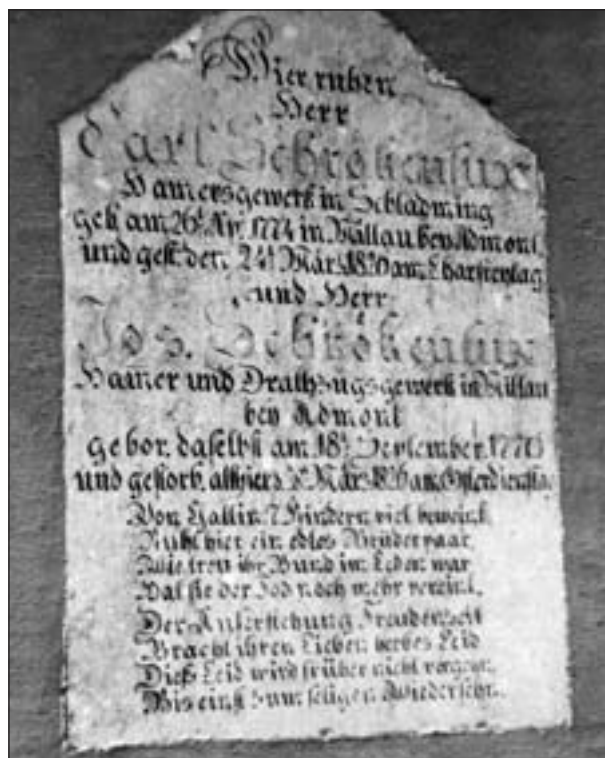 Hier ruhen
Herr
Carl Schrökenfux
Hamersgewerk in Schladming
geb. am 26t in Mittau bey Admont
und gest. den 24t März am Charfreytag
und Herr
Jos. Schrökenfux
Hamer und Drathzugsgewerk in
bey Admont
gebor. daselbst am 18t September
und gestorb. allhier März am Osterdienstag
Von Gattin Kindern viel beweint
Ruht hier ein edles Brüderpaar
Wie treu ihr Bund im Leben war
Hat sie der Tod noch mehr vereint.
Der Auferstehung Freudenzeit
Bracht ihren Lieben herbes Leid
Dieß Leid wird früher nicht vergehn
Bis einst zum seligen Wiedersehn.